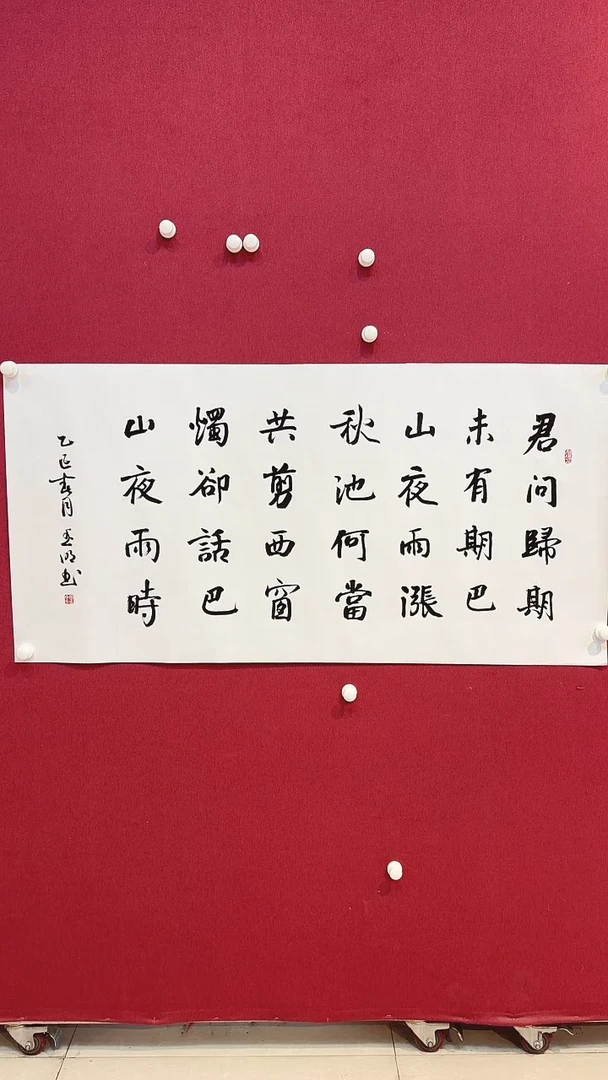 君问歸期
未有期巴
山夜雨漲
秋池何當
共剪西窗
燭卻話巴
山夜雨時
乙巳春月